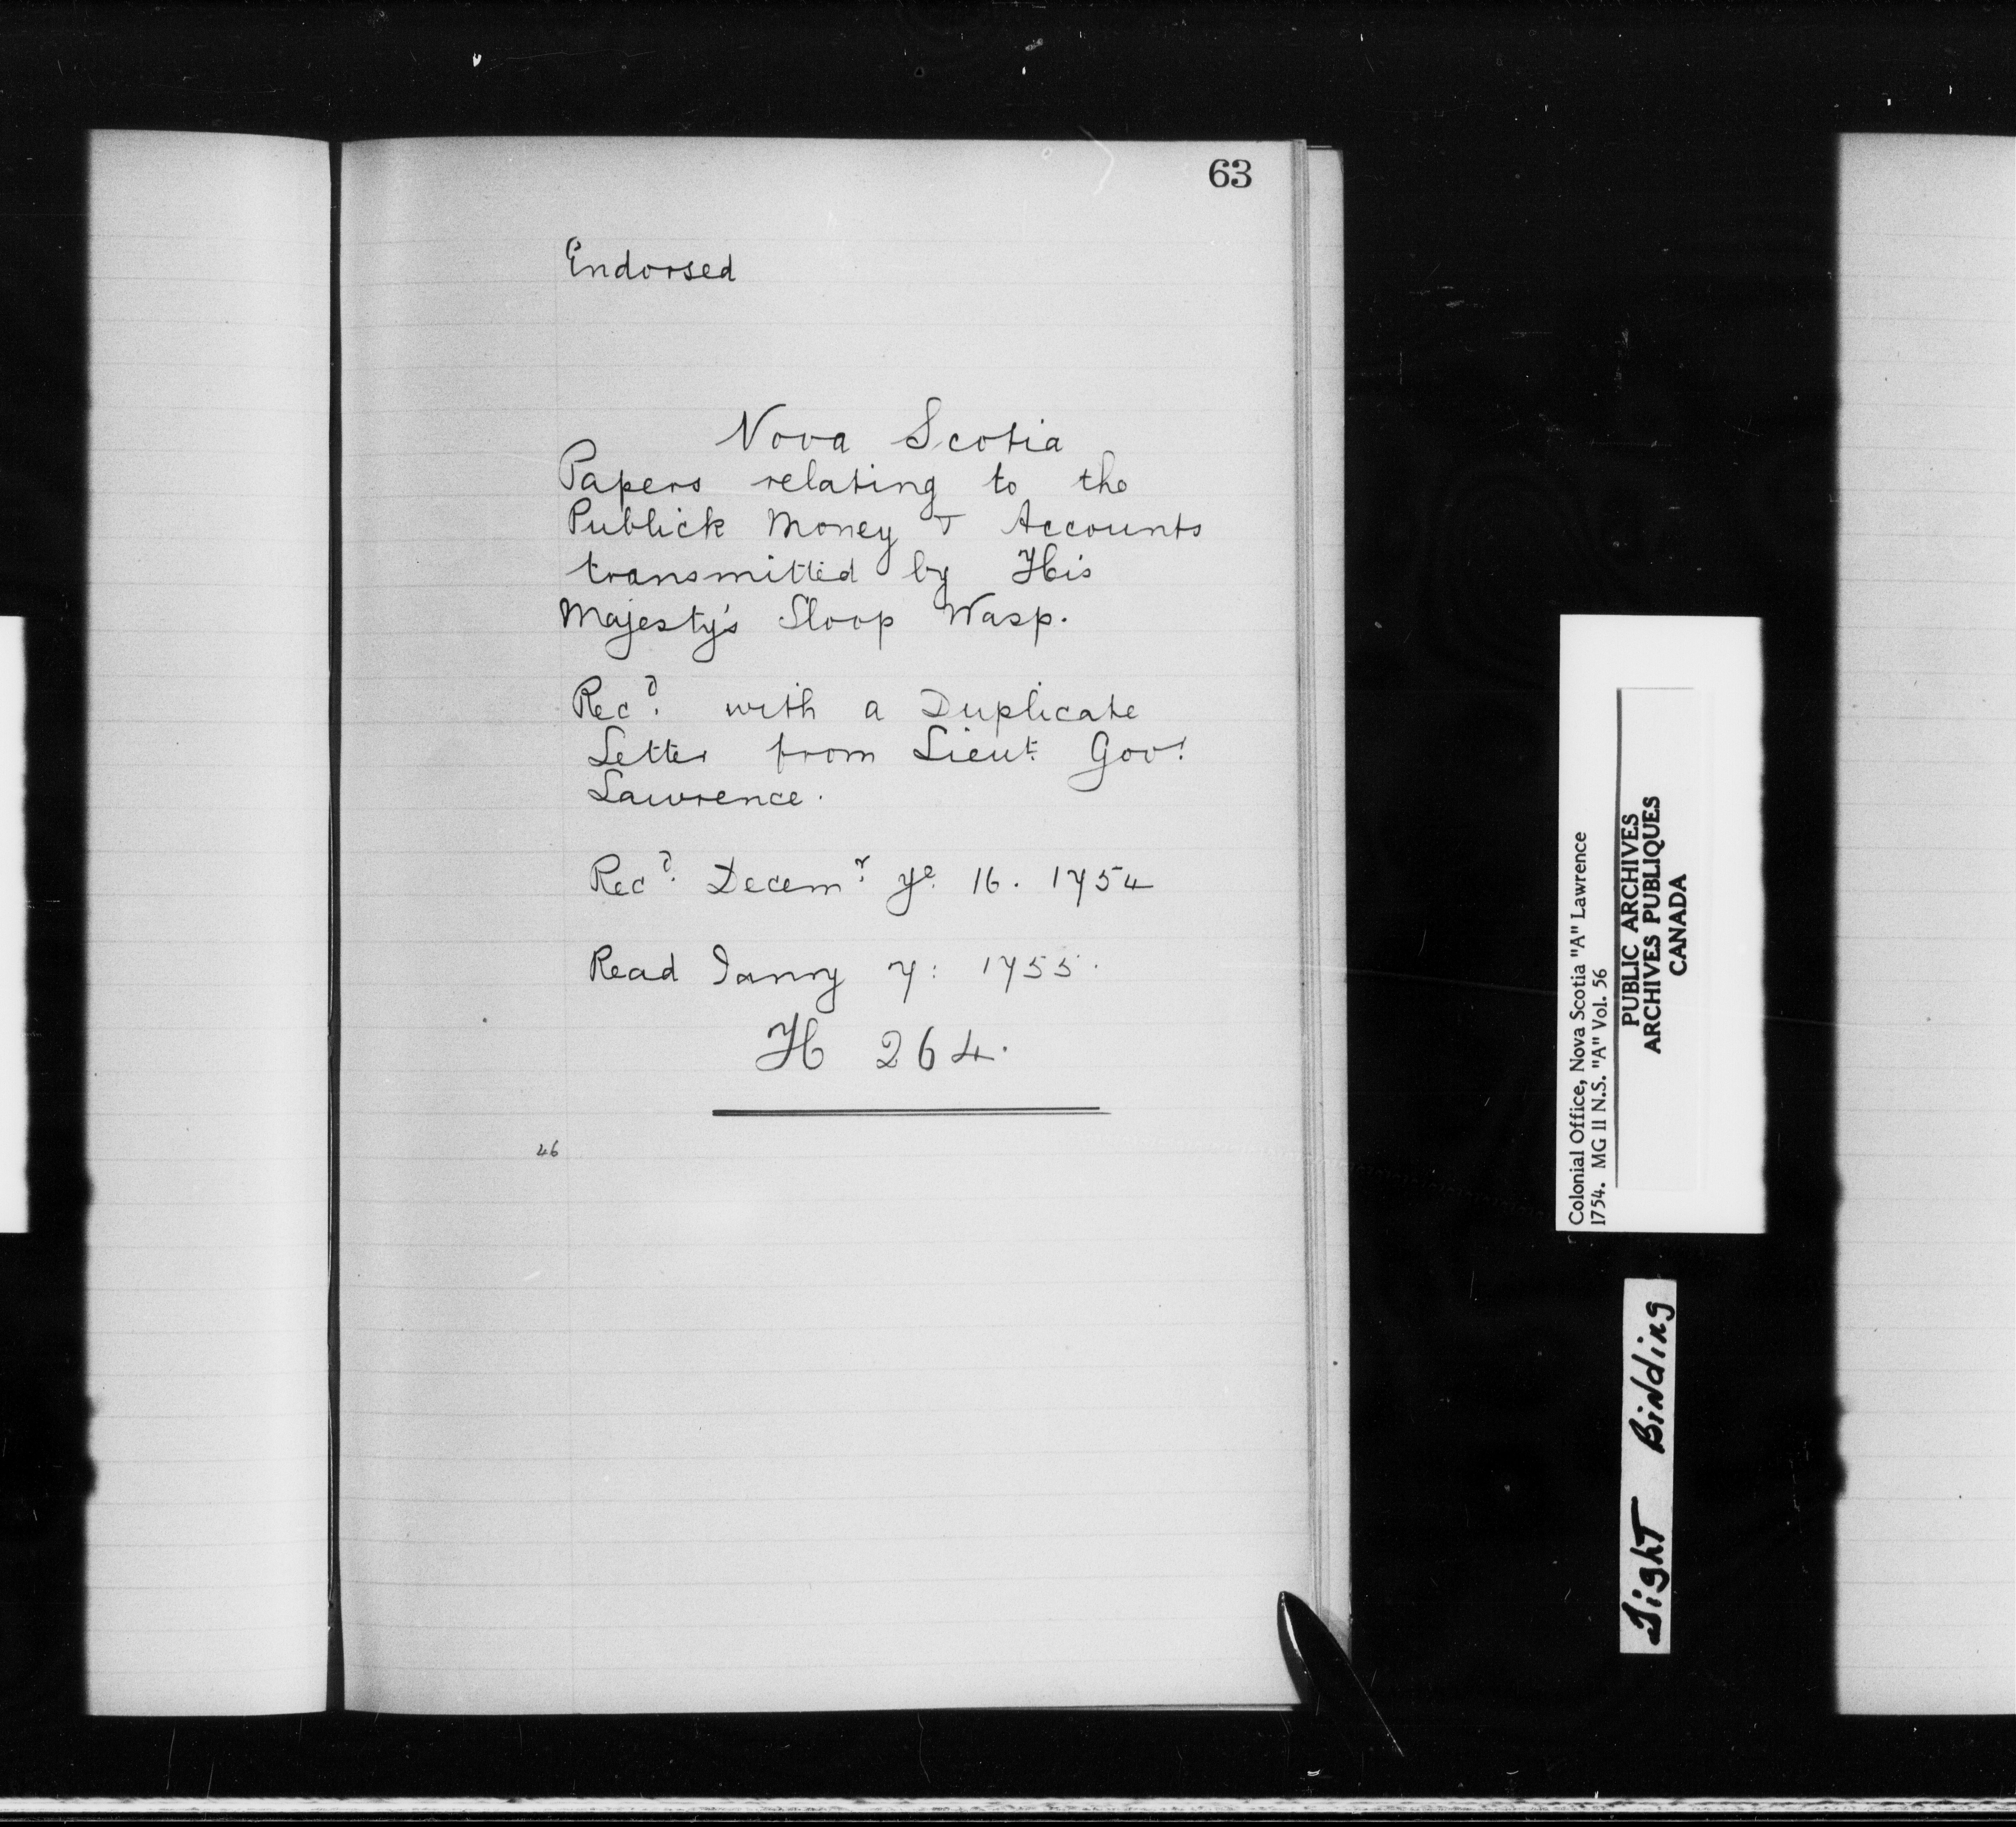 63
Endorsed
Nova Scotia
Papers relating to the
Publick Money & Accounts
transmitted by His
Majesty's Sloop Wasp.
Rec.ᵈ with a Duplicate
Letter from Lieu.ᵗ Gov.ʳ
Lawrence.
Rec.ᵈ Decem.ʳ yᵉ 16. 1754
Read Janry 7: 1755.
H 264.
46
Colonial Office, Nova Scotia "A" Lawrence
1754. MG 11 N.S. "A" Vol. 56
PUBLIC ARCHIVES
ARCHIVES PUBLIQUES
CANADA
Tight Binding